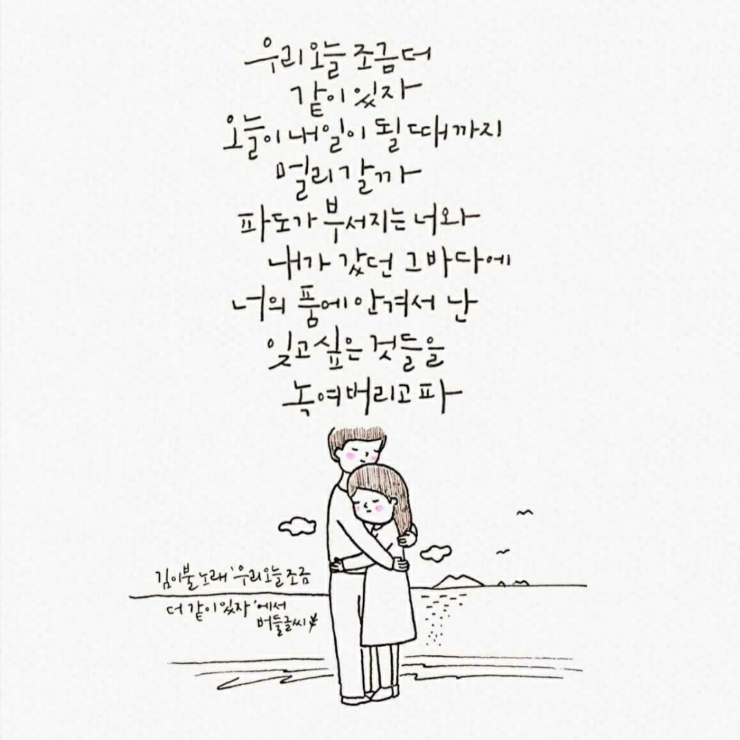 우리 오늘 조금 더
같이 있자
오늘이 내일이 될 때까지
멀리 갈까
파도가 부서지는 너와
내가 갔던 그 바다에
너의 품에 안겨서 난
잊고 싶은 것들을
녹여버리고파
김이불 노래 '우리 오늘 조금
더 같이 있자'에서
버들글씨